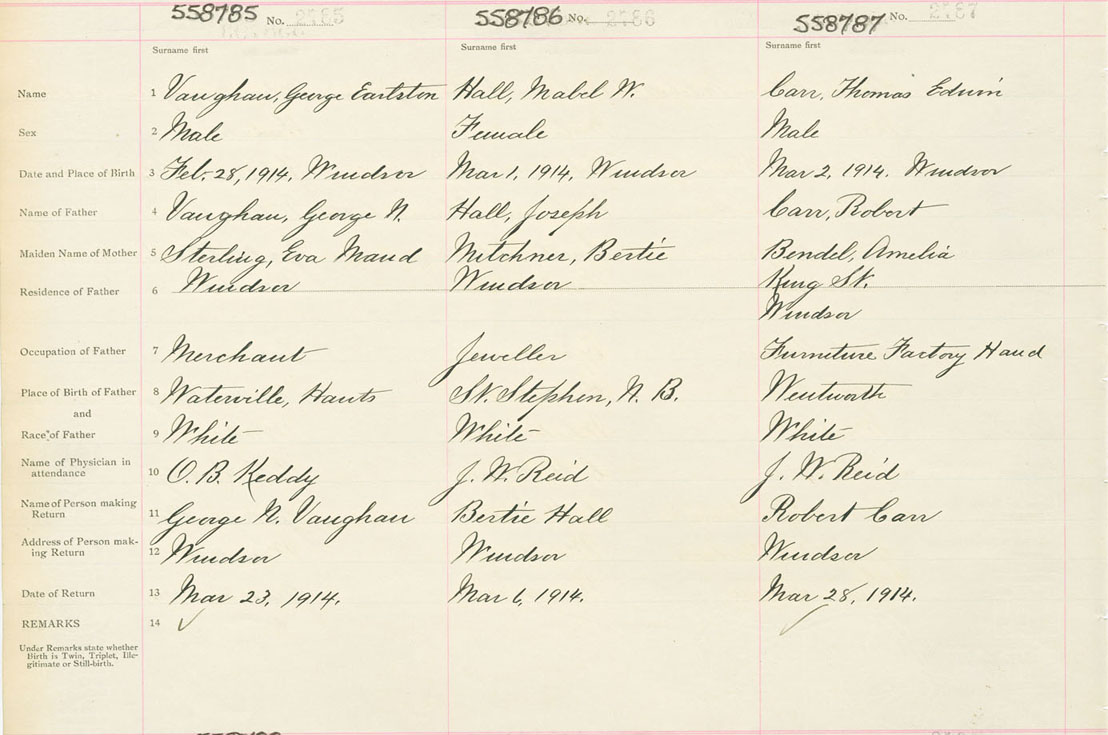 558785 No. 2785 558786 No. 2786 558787 No. 2787
Surname first Surname first Surname first
Name 1 Vaughan, George Hall, Mabel W. Carr, Thomas Edwin
Sex 2 Male Female Male
Date and Place of Birth 3 Feb. 28, 1914. Windsor Mar 1, 1914. Windsor Mar 2, 1914. Windsor
Name of Father 4 Vaughan, George N. Hall, Joseph Carr, Robert
Maiden Name of Mother 5 Sterling, Eva Maud Mitchner, Bertie Bendel, Amelia
Residence of Father 6 Windsor Windsor King St.
Windsor
Occupation of Father 7 Merchant Jeweller Furniture Factory Hand
Place of Birth of Father 8 Waterville, Hants St. Stephen, N. B. Wentworth
and
Race of Father 9 White White White
Name of Physician in
attendance 10 O. B. Keddy J. W. Reid J. W. Reid
Name of Person making
Return 11 George N. Vaughan Bertie Hall Robert Carr
Address of Person mak-
ing Return 12 Windsor Windsor Windsor
Date of Return 13 Mar 23, 1914. Mar 6, 1914. Mar 28, 1914.
REMARKS 14
Under Remarks state whether
Birth is Twin, Triplet, Ille-
gitimate or Still-birth.